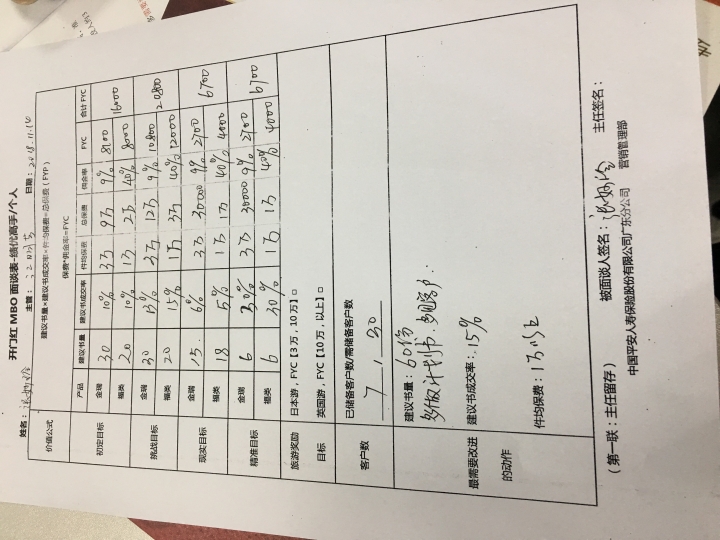 开门红 MBO 面谈表-绩优高手/个人
姓名： 主管： 日期：2018.11.14
价值公式 建议书量×建议书成交率×件均保费=总保费（FYP）
保费*佣金率=FYC
产品 建议书量 建议书成交率 件均保费 总保费 佣金率 FYC 合计 FYC
初定目标 金瑞 30 10% 3万 9万 9% 8100 16000
福类 20 10% 1万 2万 40% 8000
挑战目标 金瑞 30 13% 3万 12万 9% 10800 20800
福类 20 15% 1万 3万 40% 12000
现实目标 金瑞 15. 6% 3万 30000 9% 2700 6700
福类 18 5% 1万 1万 40% 4000
精准目标 金瑞 6 30% 3万 30000 9% 2700 6700
福类 6 30% 1万 1万 40% 4000
旅游奖励 日本游，FYC【3 万，10 万】□
目标 英国游，FYC【10 万，以上】□
客户数 已储备客户数/需储备客户数
7 / 30
最需要改进
的动作
建议书量：60份
多版计划书.多见客户.
建议书成交率：15%
件均保费：1万以上
（ 第一联：主任留存 ） 被面谈人签名： 主任签名：
中国平安人寿保险股份有限公司广东分公司 营销管理部